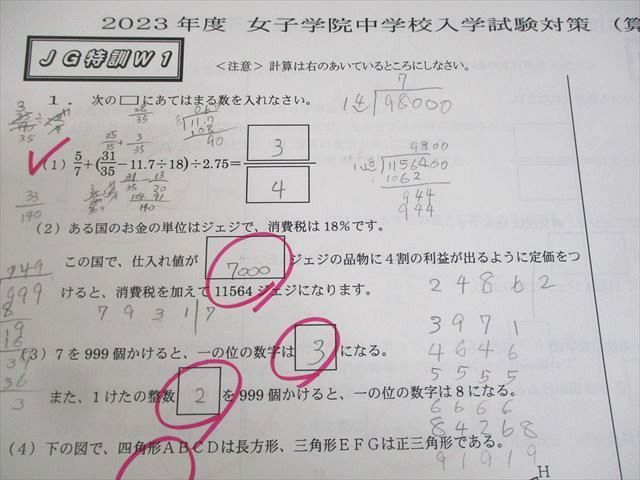 2023年度 女子学院中学校入学試験対策 （算
JG特訓W1
＜注意＞ 計算は右のあいているところにしなさい。
1． 次の□にあてはまる数を入れなさい。
(1) 5/7+(31/35－11.7÷18)÷2.75＝ 3/4
(2) ある国のお金の単位はジェジで、消費税は18％です。
この国で、仕入れ値が 7000 ジェジの品物に４割の利益が出るように定価をつ
けると、消費税を加えて11564ジェジになります。
(3) 7を999個かけると、一の位の数字は 3 になる。
また、1けたの整数 2 を999個かけると、一の位の数字は8になる。
(4) 下の図で、四角形ＡＢＣＤは長方形、三角形ＥＦＧは正三角形である。
H
7
98000
9800
1062
944
944
7 9 3 1 7
2 4 8 6 2
3 9 7 1
4 6 4 6
5 5 5 5
6 6 6 6
8 4 2 6 8
9 1 9 1 9
33/140
249
999
8
19
16
39
36
3